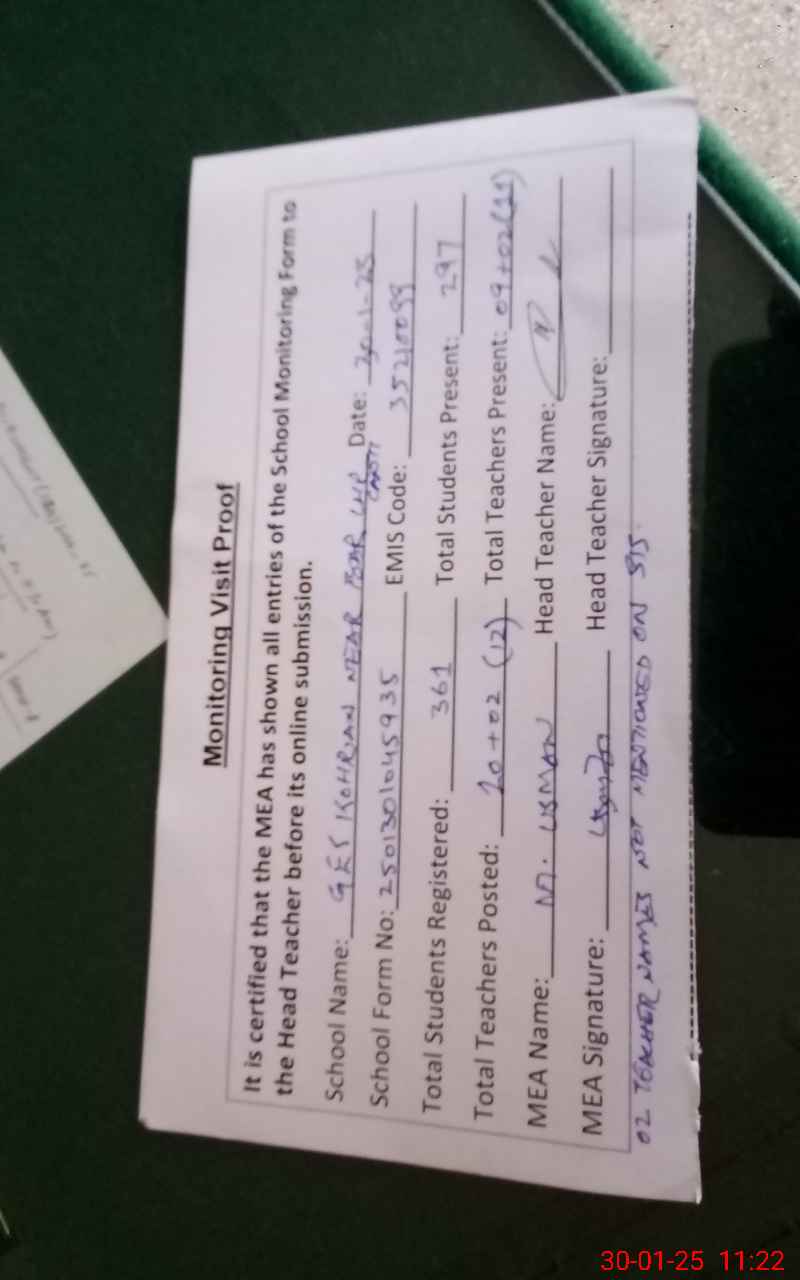 Monitoring Visit Proof
It is certified that the MEA has shown all entries of the School Monitoring Form to
the Head Teacher before its online submission.
School Name: GES KOHRIAN NEAR LHR CANTT Date: 30-01-25
School Form No: 2501301045935 EMIS Code: 35210099
Total Students Registered: 361 Total Students Present: 297
Total Teachers Posted: 10+02 (12) Total Teachers Present: 09+02(11)
MEA Name: M. USMAN Head Teacher Name:
MEA Signature: Usman Head Teacher Signature:
02 TEACHER NAMES NOT MENTIONED ON SIS.
30-01-25 11:22